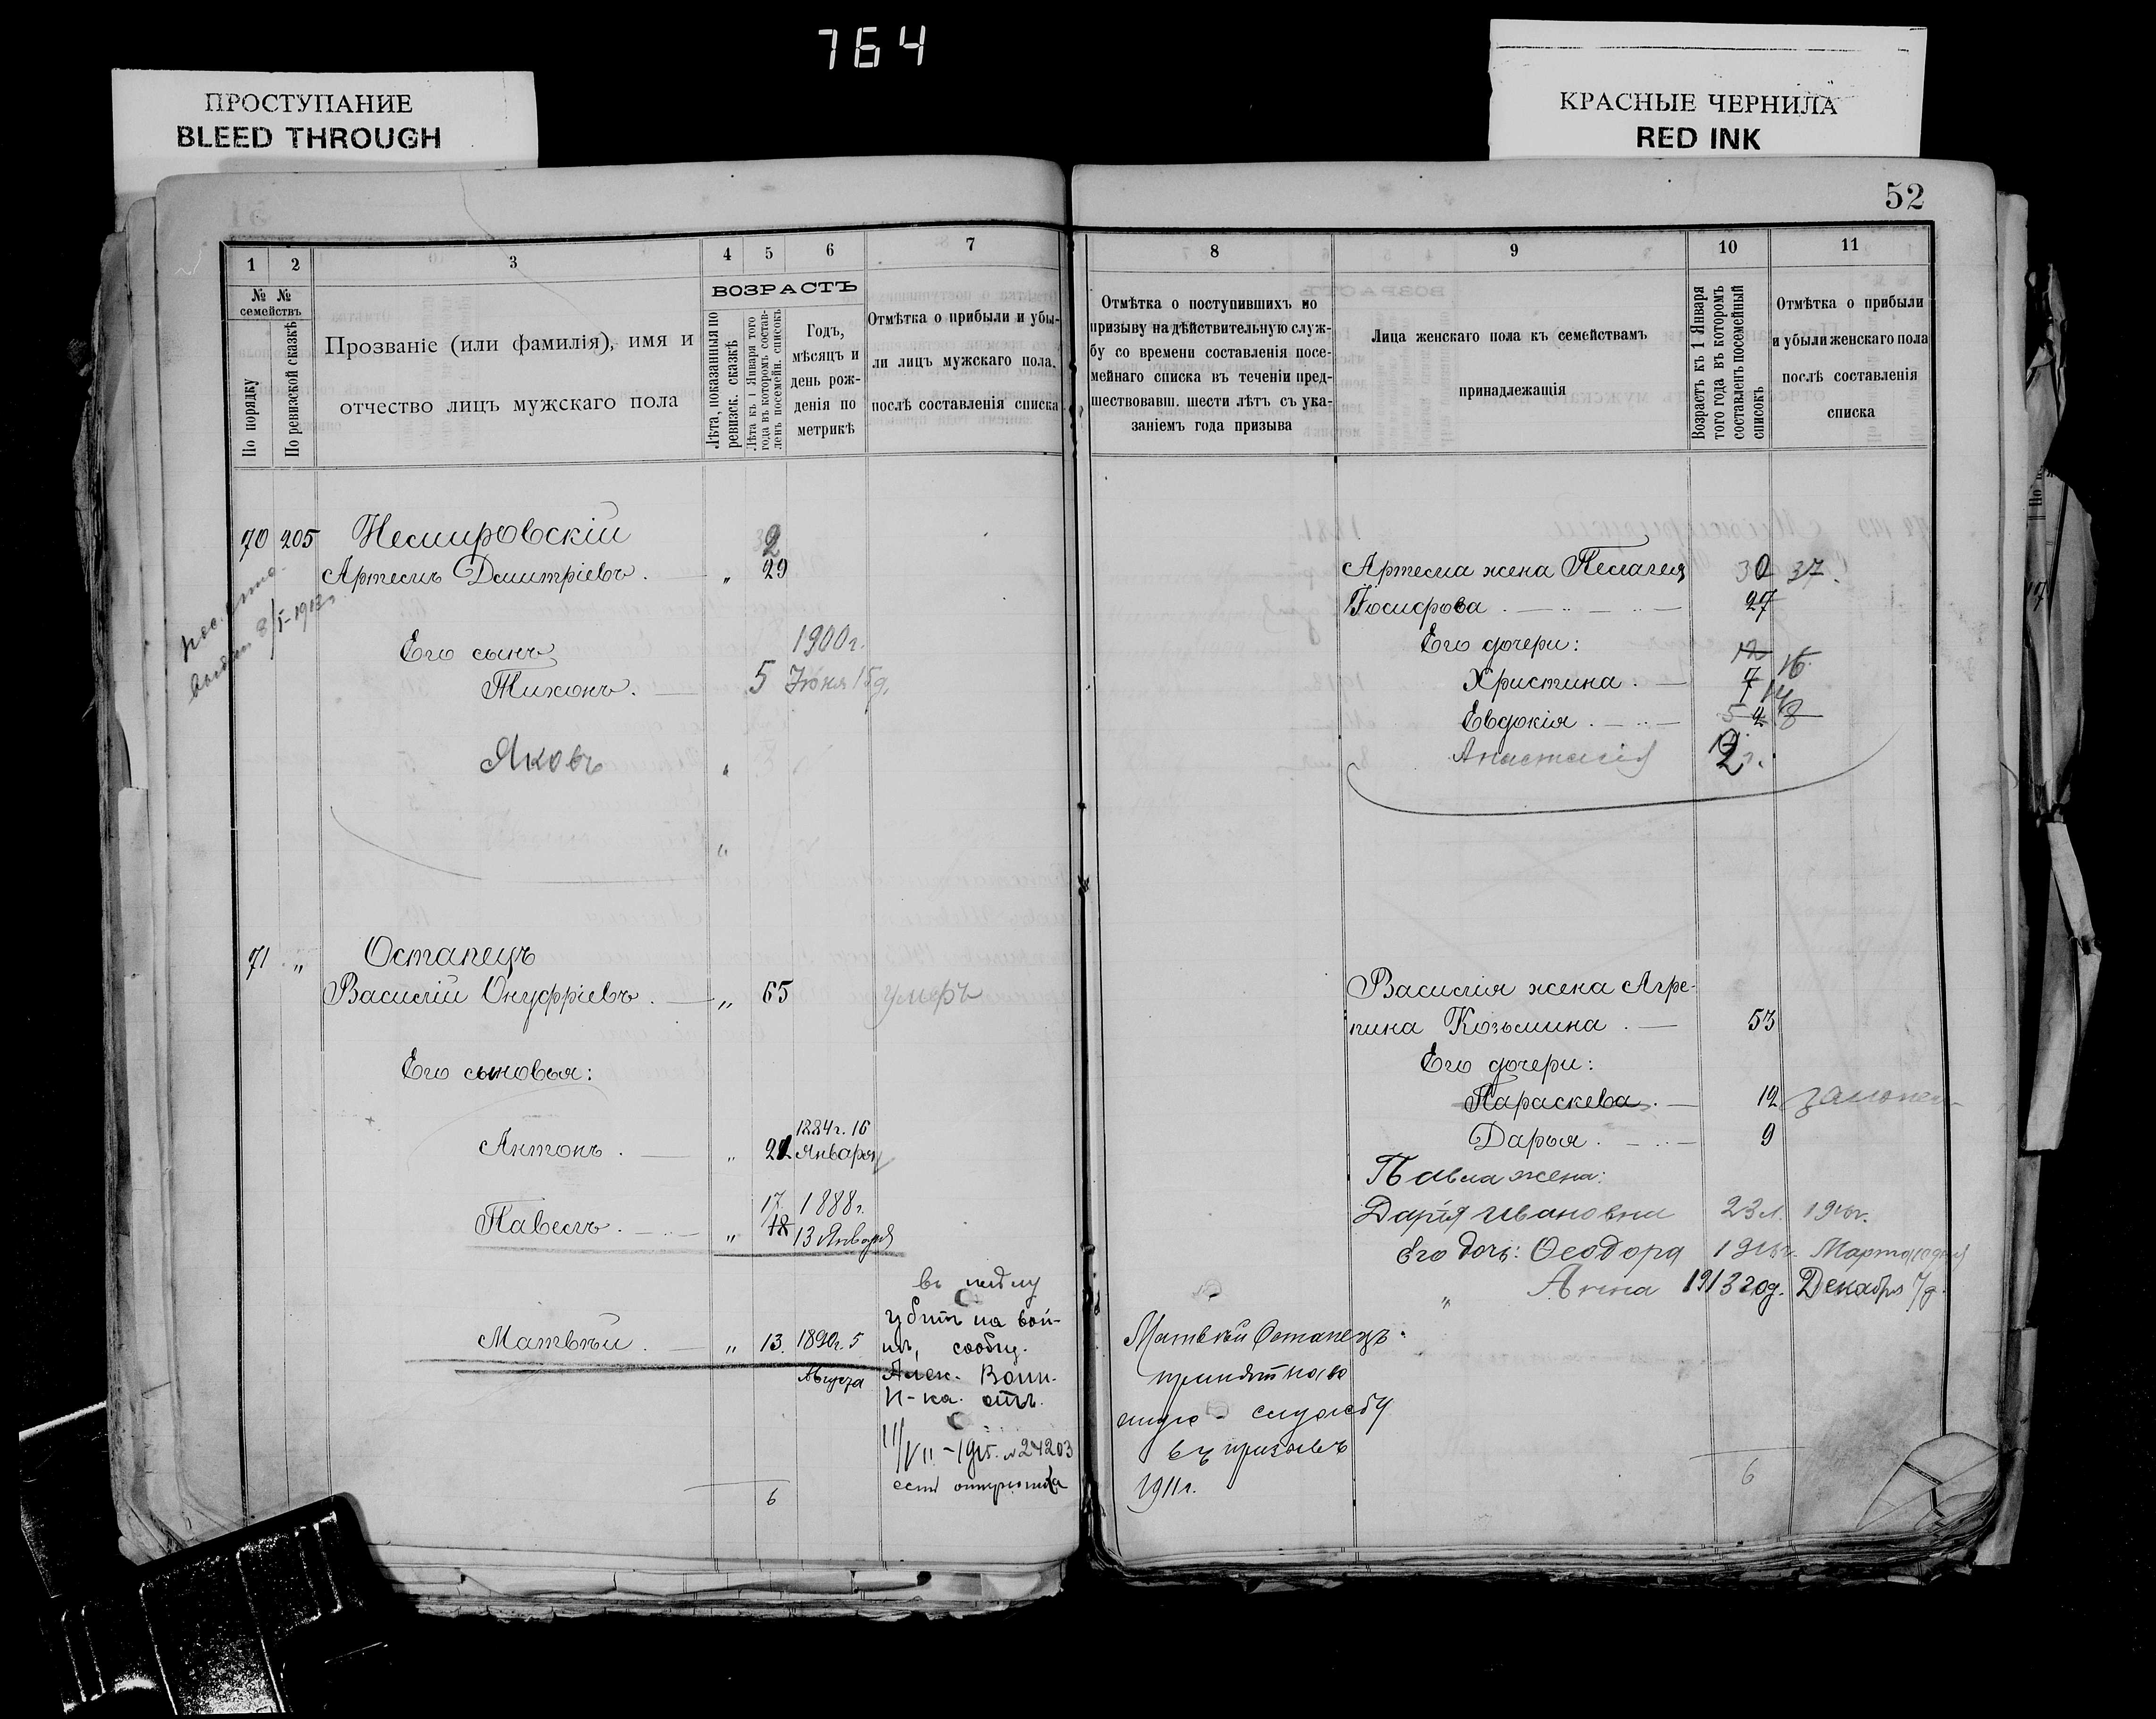 764
ПРОСТУПАНИЕ
BLEED THROUGH
КРАСНЫЕ ЧЕРНИЛА
RED INK
52
1 2 3 4 5 6 7
№ №
семействъ
По порядку
По ревизской сказкѣ
Прозваніе (или фамилія), имя и
отчество лицъ мужскаго пола
ВОЗРАСТЪ
Лѣта, показанныя по
ревизск. сказкѣ
Лѣта къ 1 Января того
года въ которомъ состав-
ленъ посемейн. списокъ
Годъ,
мѣсяцъ и
день рож-
денія по
метрикѣ
Отмѣтка о прибыли и убы-
ли лицъ мужскаго пола,
послѣ составленія списка
70 205 Немировскій
2
Артемъ Дмитріевъ. „ 29
8/I-1913
Его сынъ 1900 г.
Тихонъ. 5 Іюня 15 д.
Яковъ „
„
71 „ Остапецъ
Василій Онуфріевъ. „ 65 умеръ
Его сыновья:
1884 г. 16
Антонъ. „ Января
17 1888 г.
Павелъ. „ 18 13 Января
Матвѣй. „ 13. 1890 г. 5
Августа
убитъ на вой-
нѣ, сообщ.
Алек. Воин.
Н-ка. отъ
11/VII-1915. №24203
6
8 9 10 11
Отмѣтка о поступившихъ по
призыву на дѣйствительную служ-
бу со времени составленія посе-
мейнаго списка въ теченіи пред-
шествовавш. шести лѣтъ съ ука-
заніемъ года призыва
Лица женскаго пола къ семействамъ
принадлежащія
Возрастъ къ 1 Января
того года въ которомъ
составленъ посемейный
списокъ
Отмѣтка о прибыли
и убыли женскаго пола
послѣ составленія
списка
Артема жена Пелагея 30 37.
Іосифова. 27
Его дочери:
12
Христина. 7 16
14
Евдокія. 5 2 8
Анастасія 2
Василія жена Агре-
пина Козьмина. 53
Его дочери:
Параскева. 12
Дарья. 9
Павла жена:
Дарія Ивановна 23 л.
Его дочь: Ѳеодора Марта
„ Анна 1913 год. Декабря 7 д.
Матвѣй Остапецъ
принятъ на во
службу
въ призывъ
1911 г.
6